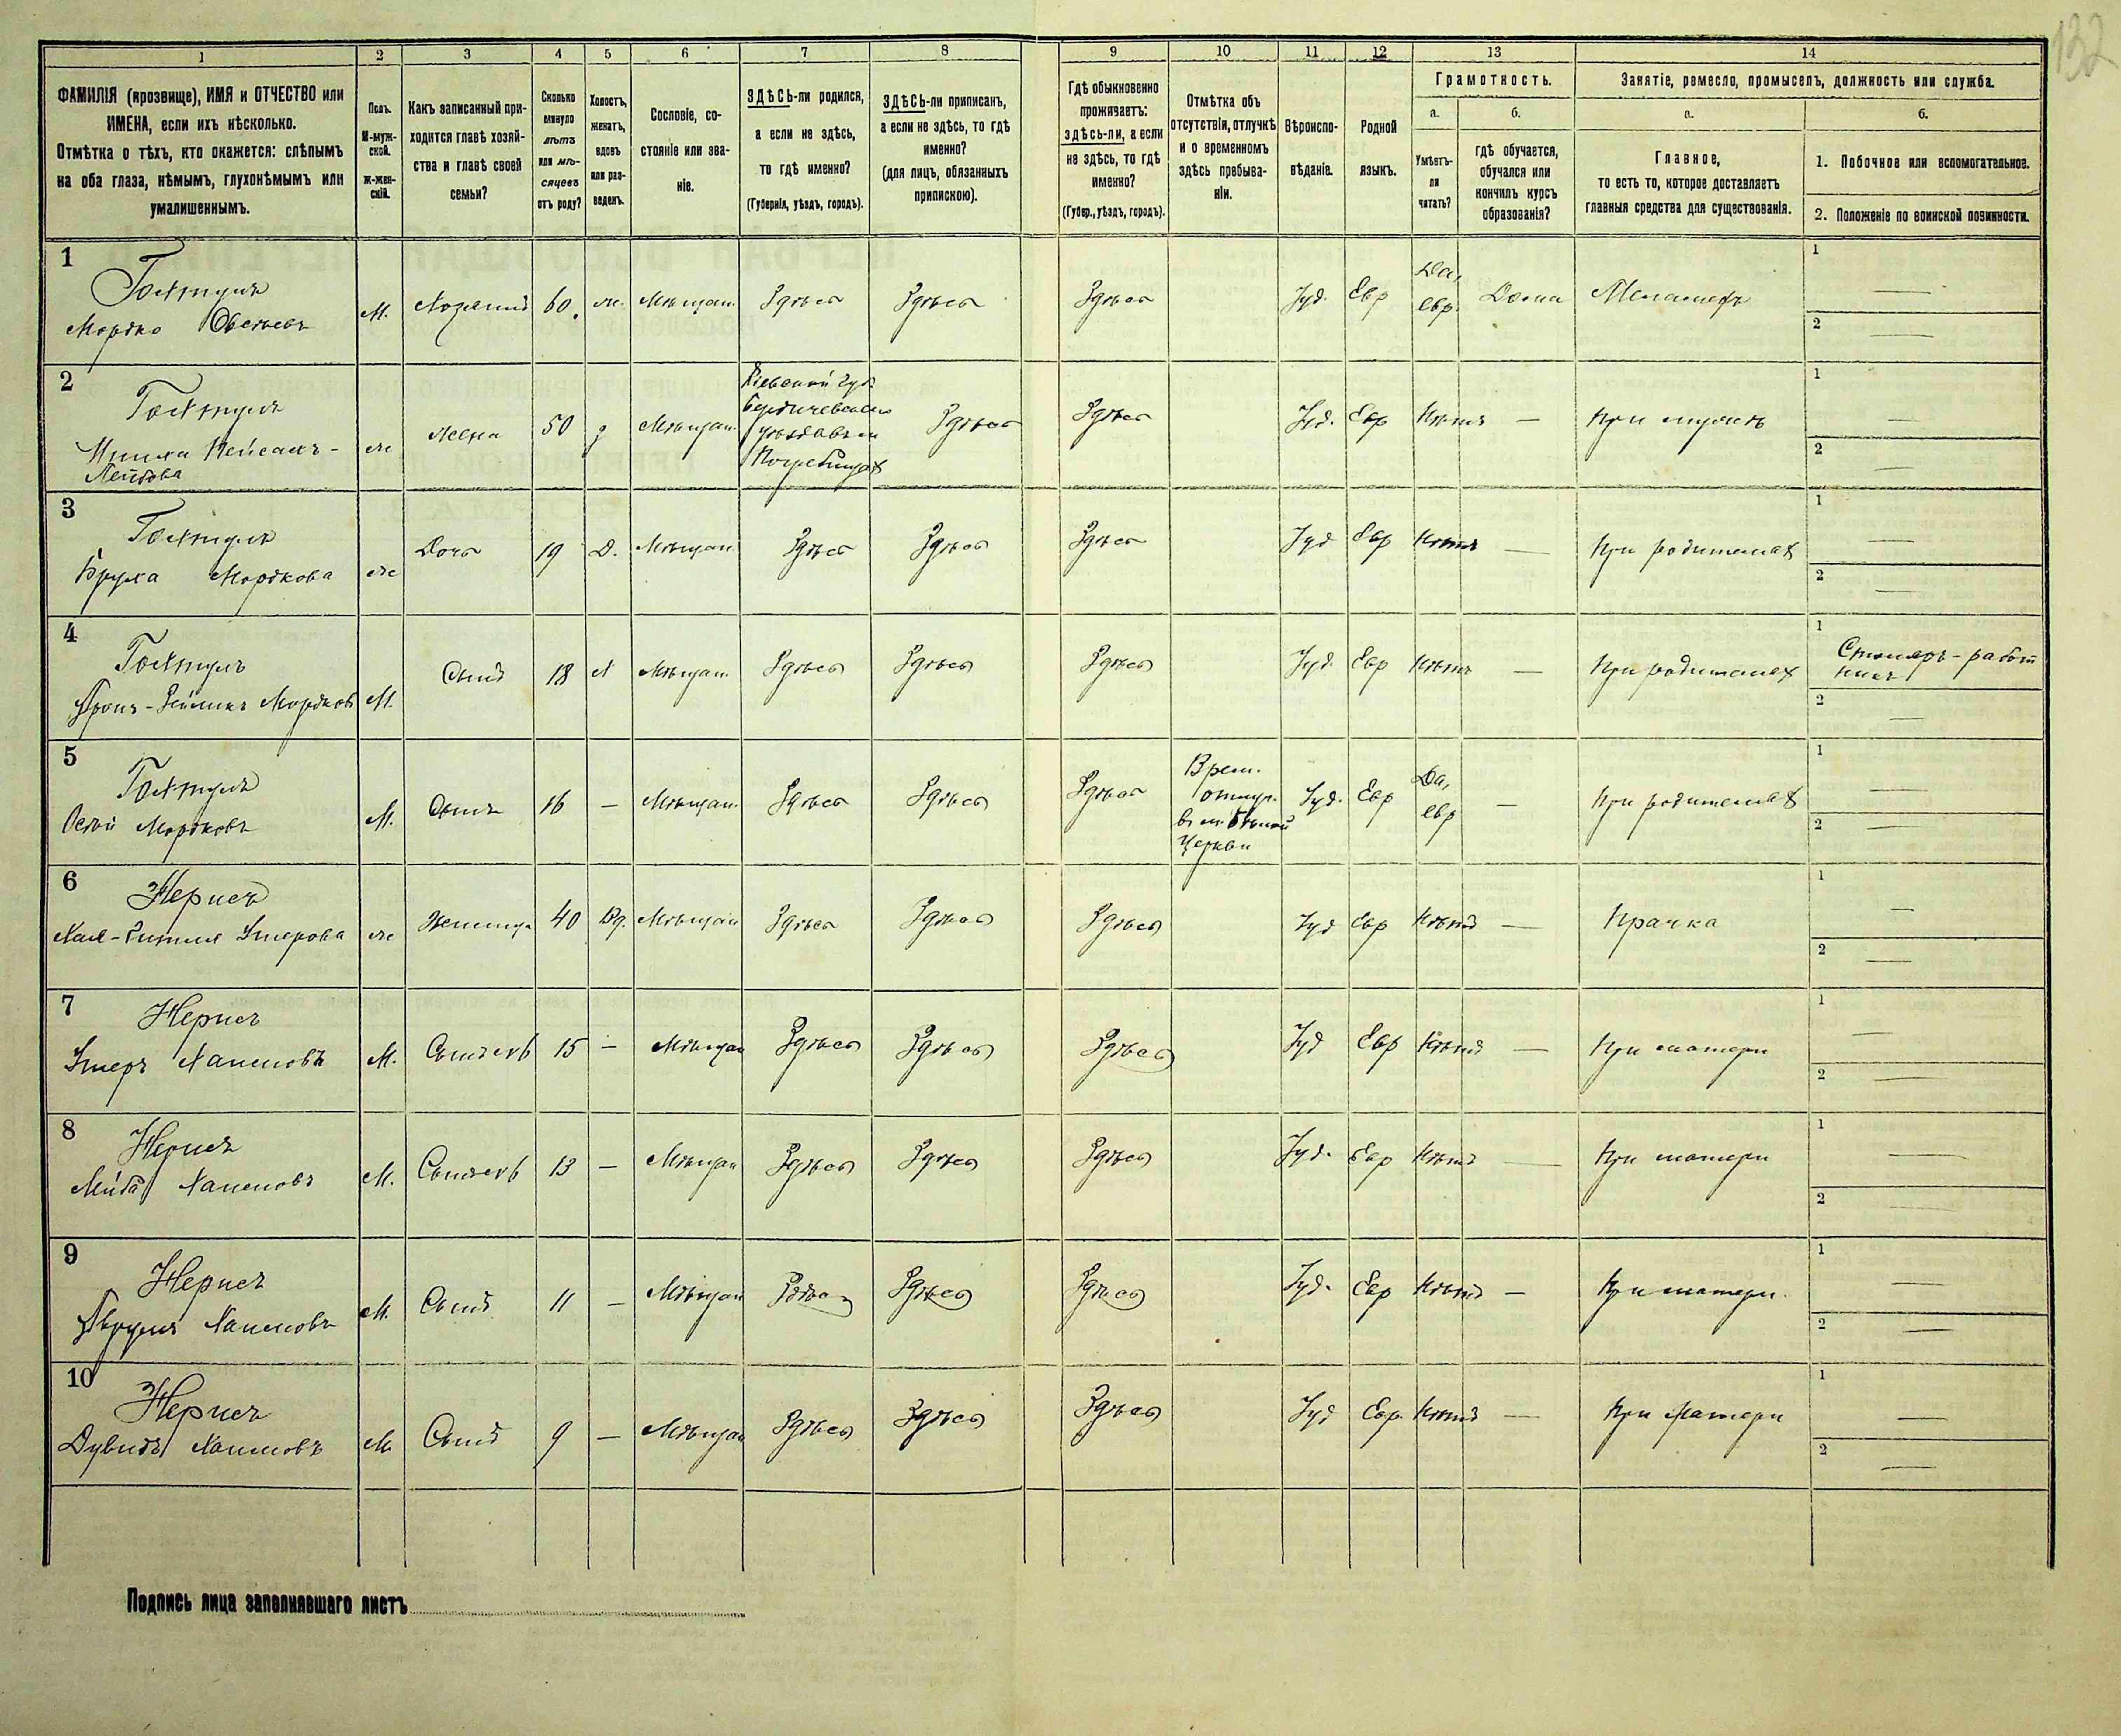 132
1 2 3 4 5 6 7 8 9 10 11 12 13 14
ФАМИЛІЯ (прозвище), ИМЯ и ОТЧЕСТВО или
ИМЕНА, если ихъ нѣсколько.
Отмѣтка о тѣхъ, кто окажется: слѣпымъ
на оба глаза, нѣмымъ, глухонѣмымъ или
умалишеннымъ.
Полъ.
М-муж-
ской.
ж-жен-
скій.
Какъ записанный при-
ходится главѣ хозяй-
ства и главѣ своей
семьи?
Сколько
минуло
лѣтъ
или мѣ-
сяцевъ
отъ роду?
Холостъ,
женатъ,
вдовъ
или раз-
веденъ.
Сословіе, со-
стояніе или зва-
ніе.
ЗДѢСЬ-ли родился,
а если не здѣсь,
то гдѣ именно?
(Губернія, уѣздъ, городъ).
ЗДѢСЬ-ли приписанъ,
а если не здѣсь, то гдѣ
именно?
(для лицъ, обязанныхъ
припискою).
Гдѣ обыкновенно
проживаетъ:
здѣсь-ли, а если
не здѣсь, то гдѣ
именно?
(Губер., уѣздъ, городъ).
Отмѣтка объ
отсутствіи, отлучкѣ
и о временномъ
здѣсь пребыва-
ніи.
Вѣроиспо-
вѣданіе.
Родной
языкъ.
Грамотность.
а.
Умѣетъ-
ли
читать?
б.
гдѣ обучается,
обучался или
кончилъ курсъ
образованія?
Занятіе, ремесло, промыселъ, должность или служба.
а.
Главное,
то есть то, которое доставляетъ
главныя средства для существованія.
б.
1. Побочное или вспомогательное.
2. Положеніе по воинской повинности.
1
Мордко
М. Хозяинъ 60 ж. Мѣщан. Здѣсь Здѣсь Здѣсь Іуд. Евр Да, евр. Дома Меламедъ
1 —
2 —
2
Лейбова
ж Жена 50 з Мѣщан.
Кіевской губ.
Бердичевскаго
уѣзда въ м.
Погребищах
Здѣсь Здѣсь Іуд. Евр Нѣтъ — При мужѣ
1 —
2 —
3
Бруха Мордкова
ж Дочь 19 Д. Мѣщан. Здѣсь Здѣсь Здѣсь Іуд Евр Нѣтъ — При родителях
1 —
2 —
4
Мордков
М. Сынъ 18 Х Мѣщан. Здѣсь Здѣсь Здѣсь Іуд. Евр Нѣтъ — При родителях
1 Столяръ-работ
никъ
2 —
5
Мордковъ
М. Сынъ 16 — Мѣщан. Здѣсь Здѣсь Здѣсь
Врем.
отлуч.
в м. Бѣлой
Церкви
Іуд. Евр Да, евр — При родителях
1 —
2 —
6
Хая- Умерова
ж Женщина 40 Вд. Мѣщан Здѣсь Здѣсь Здѣсь Іуд Евр Нѣтъ — Прачка
1 —
2 —
7
Хаимовъ
М. Сынъ 15 — Мѣщан Здѣсь Здѣсь Здѣсь Іуд Евр Нѣтъ — При матери
1 —
2 —
8
Хаимовъ
М. Сынъ 13 — Мѣщан Здѣсь Здѣсь Здѣсь Іуд. Евр Нѣтъ — При матери
1 —
2 —
9
Хаимовъ
М. Сынъ 11 — Мѣщан Здѣсь Здѣсь Здѣсь Іуд. Евр Нѣтъ — При матери.
1 —
2 —
10
Дувидъ Хаимовъ
М Сынъ 9 — Мѣщан Здѣсь Здѣсь Здѣсь Іуд Евр. Нѣтъ — При матери
1 —
2 —
Подпись лица заполнявшаго листъ